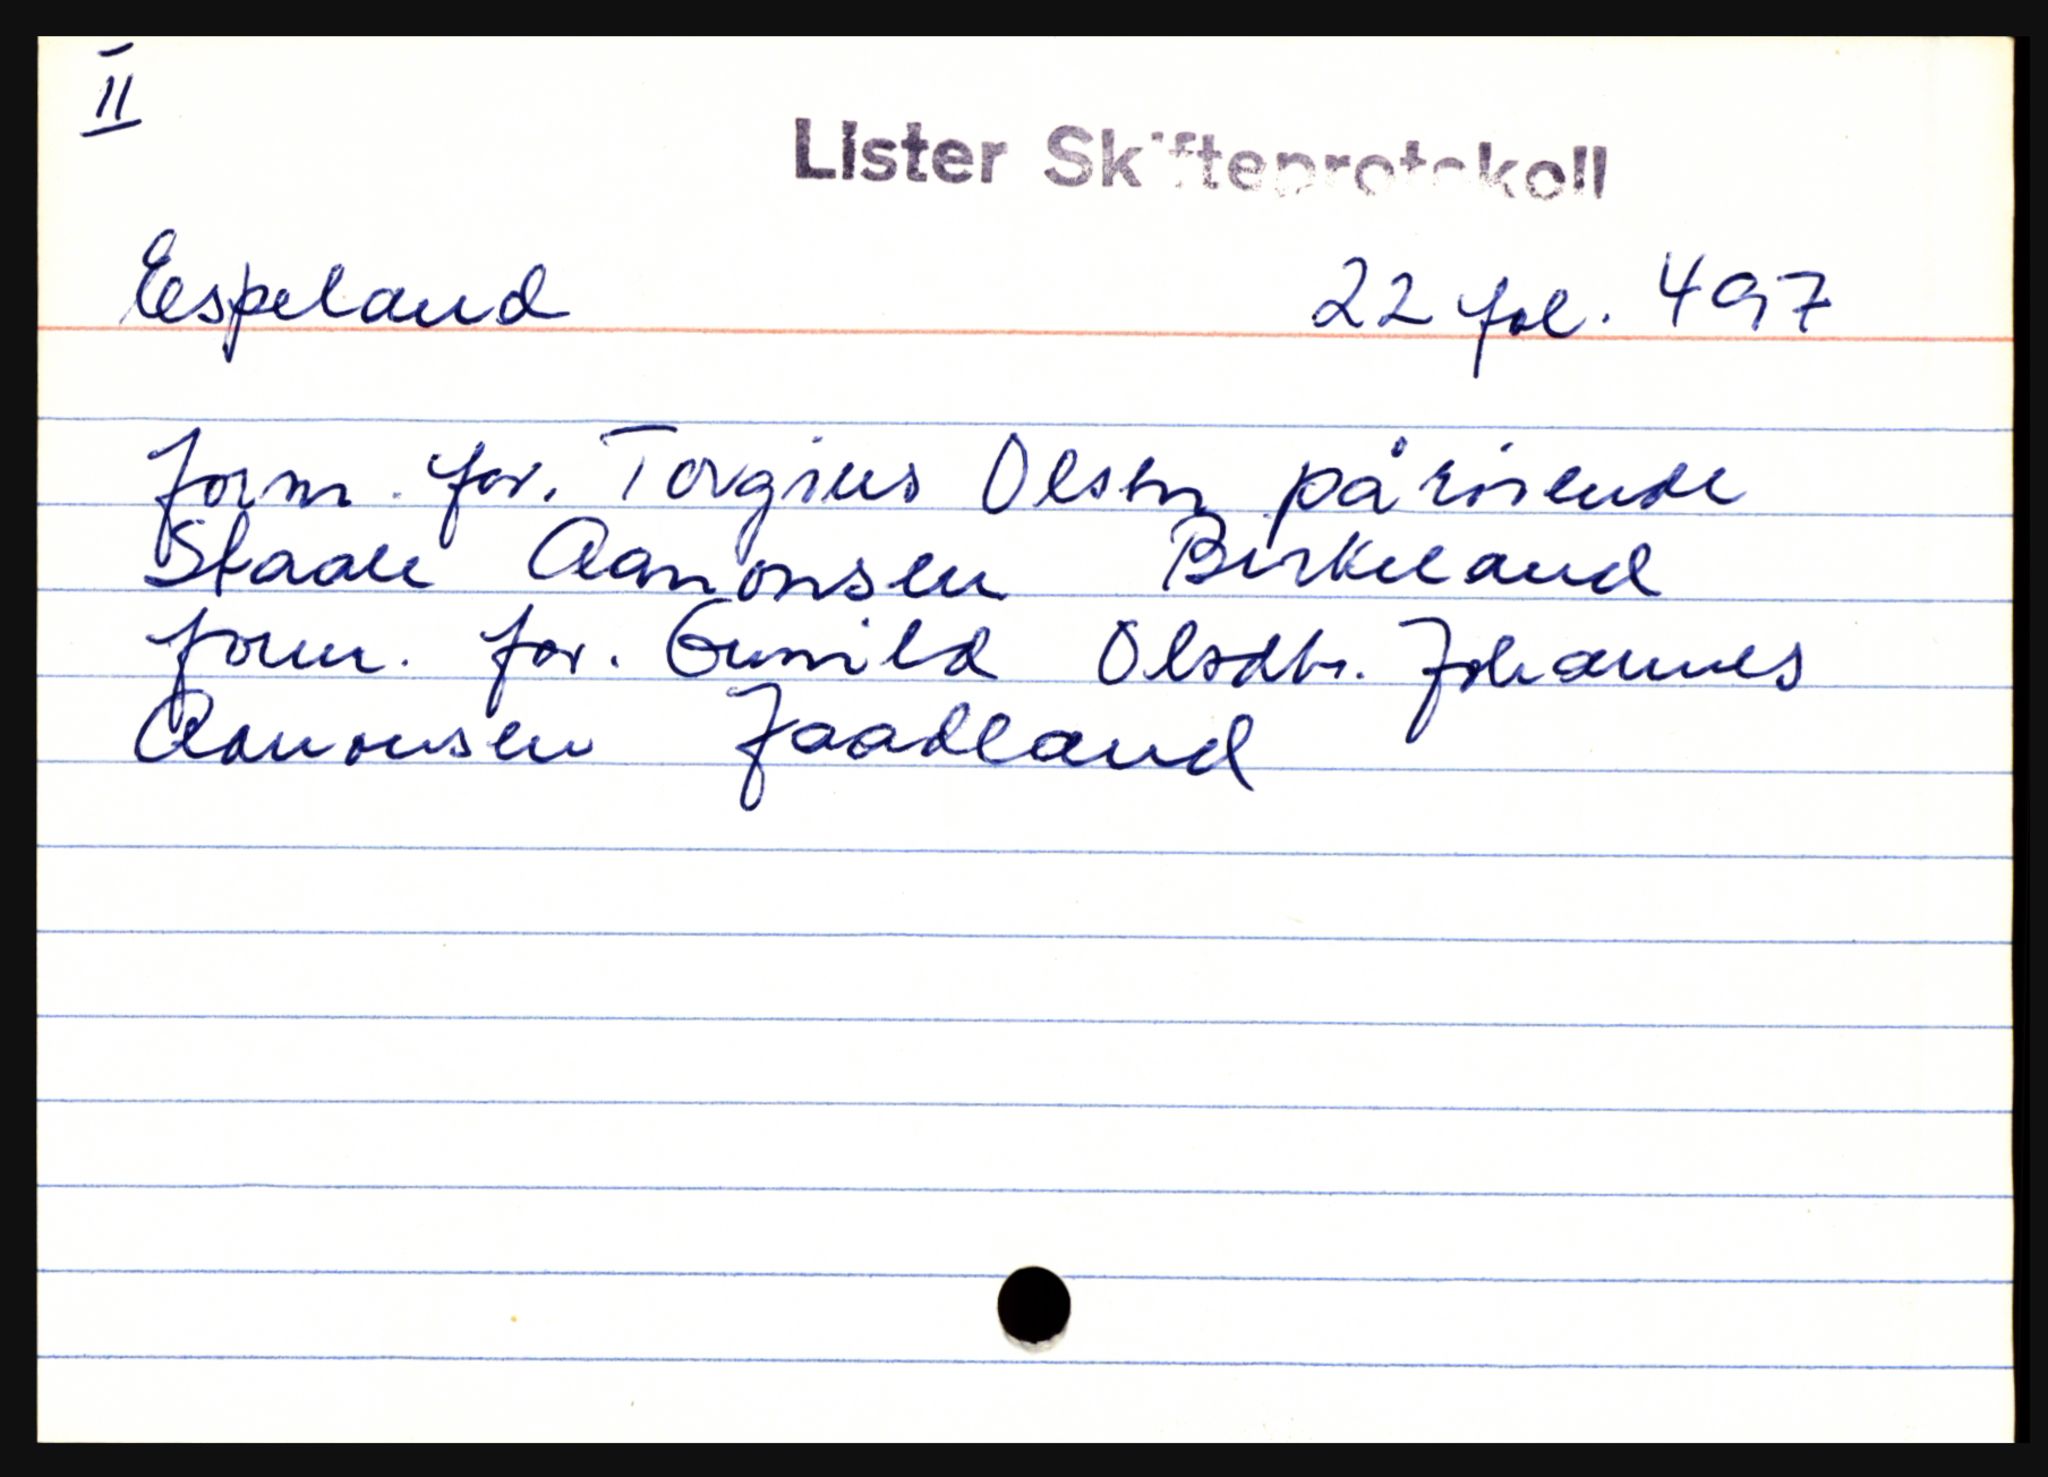 II
Lister Skifteprotokoll
Espeland 22 fol. 497
form. for. Torgius Olsen pårörende
Staale Aanonsen Birkeland
form. for. Gunild Olsdtr. Johannes
Aanonsen Jaadland